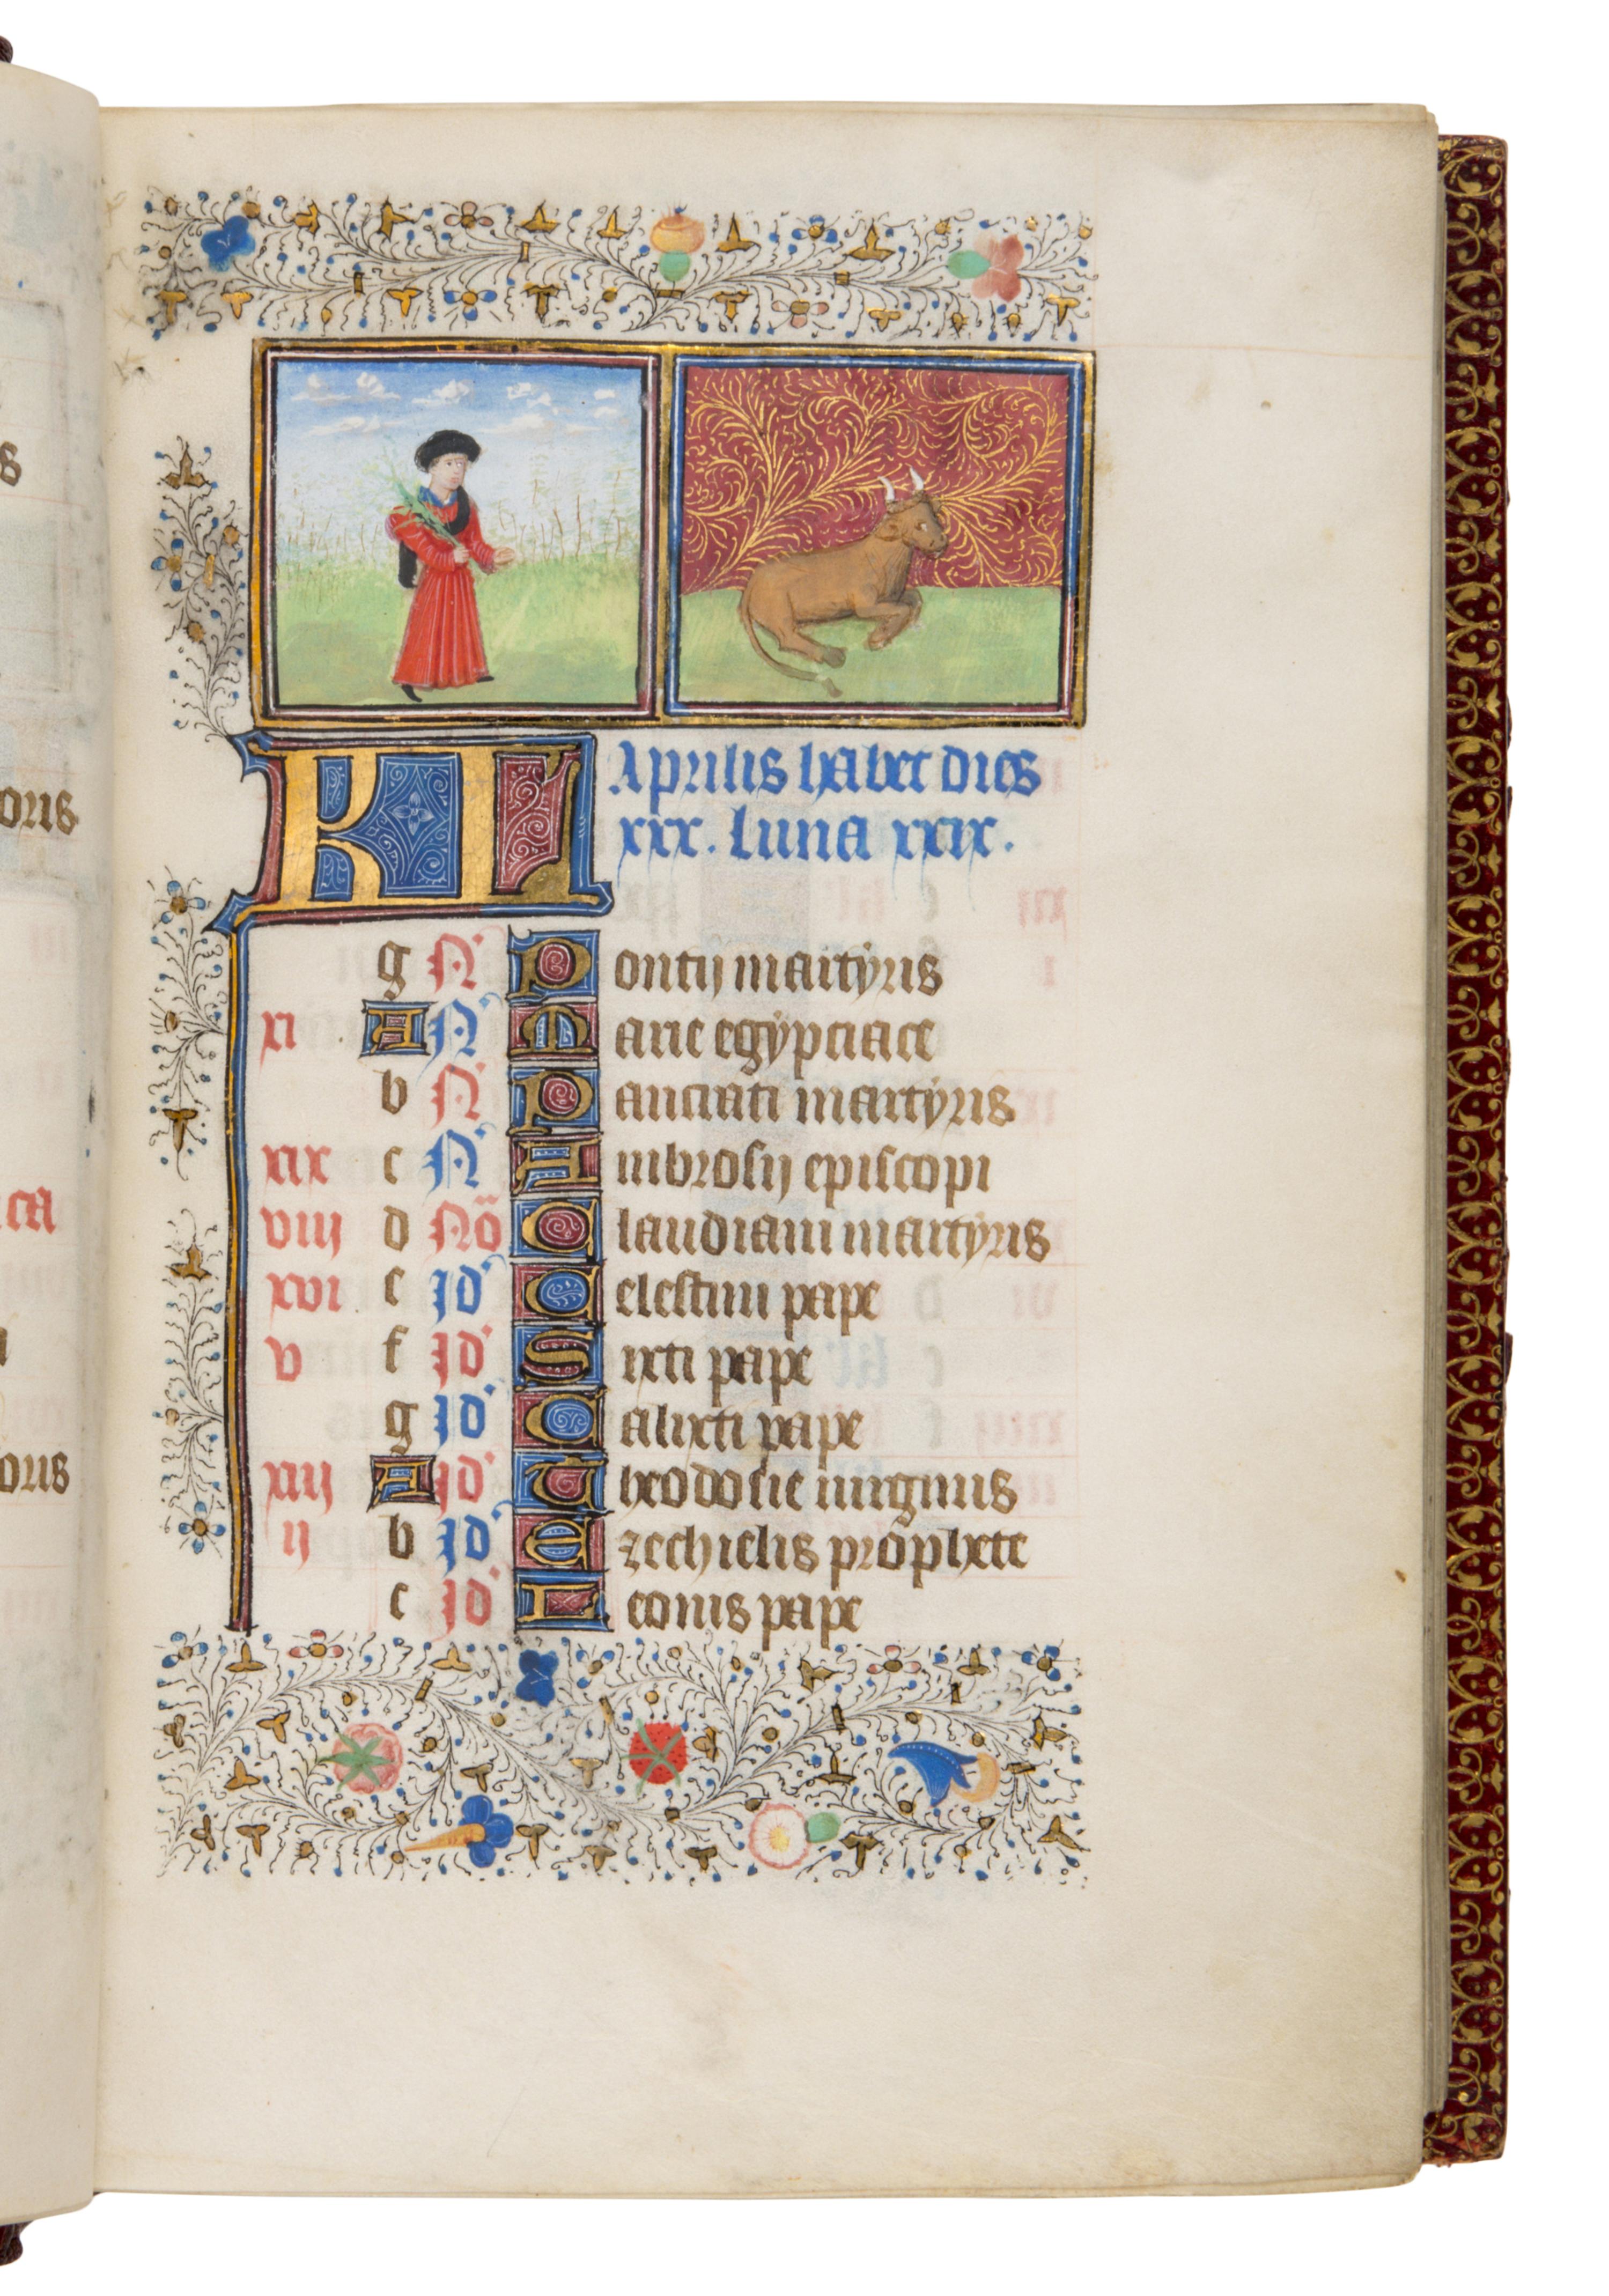 KL Aprilis habet dies
xxx. luna xxix.
g N' Pontij martyris
xi A N' Marie egypciace
b N' Panciati martyris
xix c N' Ambrosij episcopi
viij d No Claudiani martyris
xvi e Id' Celestini pape
v f Id' Sixti pape
g Id' Calixti pape
xiij A Id' Theodosie uirginis
ij b Id' Ezechielis prophete
c Id' Leonis pape